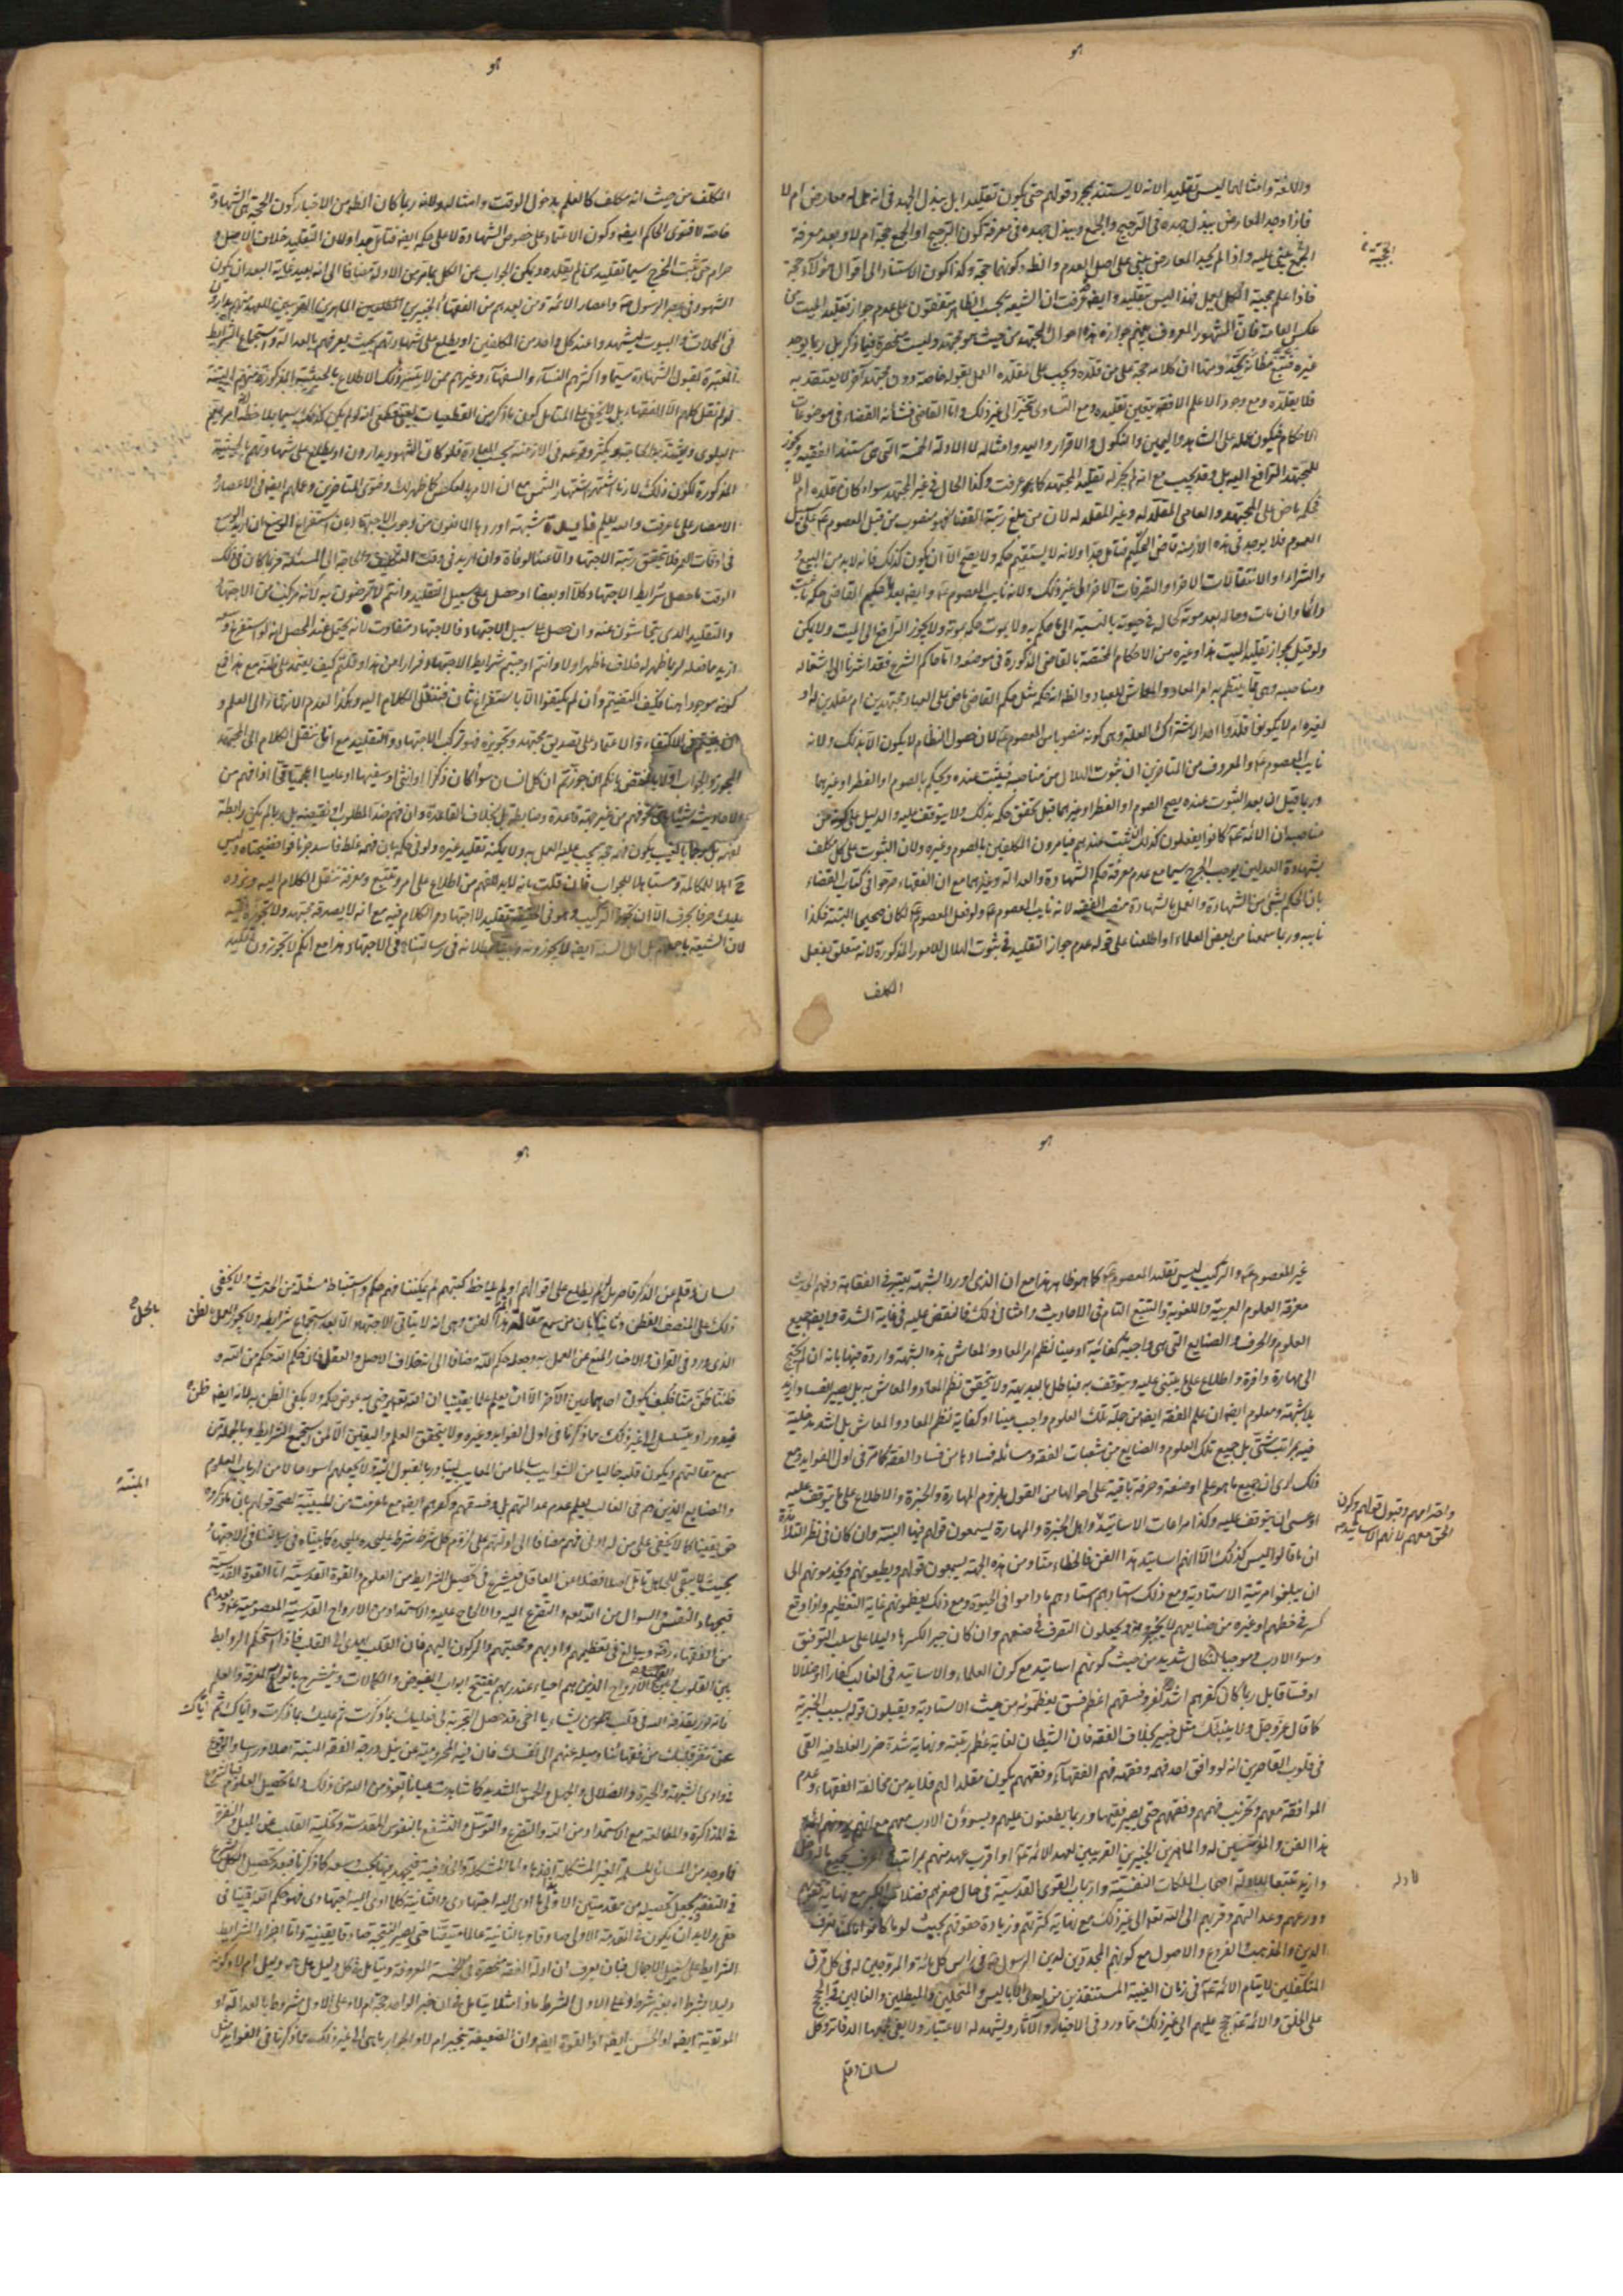 هو
واللغة وامثالهما ليس تقليدا لانه لا يستند بمجرد قولهم حتى يكون تقليدا بل يبذل الجهد في انه هل له معارض ام لا
فاذا وجد المعارض يبذل جهده في الترجيح والجمع ويبذل جهده في معرفة كون الترجيح او الجمع حجة ام لا وبعد معرفة
الجمع يبني عليه واذا لم يجد المعارض يبني على اصل العدم والظهور كونهما حجة وكذا كون الاستناد الى اقوال هؤلاء حجة
الحجية
فاذا علم حجية الكل يعمل فهذا ليس تقليد وايضا عرفت ان الشيعة بحسب الظاهر متفقون على عدم جواز تقليد الميت
عكس العامة فان المشهور المعروف بينهم جوازه هذه احوال المجتهد من حيث هو مجتهد وليست منحصرة فيما ذكر بل ربما يوجد
غيره فتتبع مظانه تجد ومنها ان كلامه حجة على من قلده ويجب على مقلده العمل بقوله خاصة دون مجتهد آخر لا يعتقد به
فلا يقلده ومع وجود الاعلم الافقه يتعين تقليده ومع التساوي تخير الى غير ذلك واما القاضي فشأنه القضاء في موضوعات
الاحكام فيكون عمله على الشاهد واليمين والنكول والاقرار واليد وامثاله لا الادلة الخمسة التي هي مستند الفقيه ويجوز
للمجتهد الترافع اليه بل وقد يجب مع انه لم يجز له تقليد المجتهد كما عرفت وكذا الحال في غير المجتهد سواء كان مقلده ام لا
فحكمه ماض على المجتهد والعامي المقلد له وغير المقلد له لان من بلغ رتبة القضاء فهو منصوب من قبل المعصوم على سبيل
العموم فلا يوجد في هذه الازمنة قاضي التحكيم فتأمل جدا ولانه لا يستقيم حكم ولا يصح الا ان يكون كذلك فانه لا بد من البيع و
والشراء والانتقالات الاخر والتصرفات الاخر الى غير ذلك ولانه نايب المعصوم وايضا بعد حكم القاضي حكمه ثابت
دائما وان مات وحاله بعد موته كحاله في حيوته بالنسبة الى ما حكم به ولا يموت حكمه بموته ولا يجوز الترافع الى الميت ولا يمكن
ولو قيل بجواز تقليد الميت هذا وغيره من الاحكام المختصة بالقاضي المذكورة في موضعه واما حاكم الشرع فقد اشرنا الى اشغاله
ومناصبه وهي مما ينتظم به امر المعاد والمعاش للعباد والظاهر ان حكمه مثل حكم القاضي ماض على العباد مجتهدين ام مقلدين له او
لغيره ام لا يكونوا قلدوا احدا لاشتراك العلة وهي كونه منصوبا من المعصوم ولان حصول النظام لا يكون الا بذلك ولانه
نايب المعصوم والمعروف من المتأخرين ان ثبوت الهلال من مناصبه فيثبت عنده ويحكم بالصوم او الفطر او غيرهما
وربما قيل ان بعد الثبوت عنده يصح الصوم او الفطر او غيرهما قبل تحقق حكمه بذلك ولا يتوقف عليه والدليل على كونه من
مناصبه ان الائمة كانوا يفعلون كذلك يثبت عندهم فيأمرون المكلفين بالصوم وغيره ولان الثبوت على كل مكلف
بشهادة العدلين يوجب الحرج سيما مع عدم معرفة حكم الشهادة والعدالة وغيرهما مع ان الفقهاء صرحوا في كتاب القضاء
بان الحكم بشئ من الشهادة والعمل بالشهادة منصب الفقيه لانه نايب المعصوم ولو فعل المعصوم لكان صحيحا البتة فكذا
نايبه وربما سمعنا من بعض العلماء او اطلعنا على قوله عدم جواز التقليد في ثبوت الهلال للامور المذكورة لانه متعلق بفعل
المكلف
هو
المكلف من حيث انه مكلف كالعلم بدخول الوقت وامثاله ولانه ربما كان الظاهر من الاخبار كون الحجة هي الشهادة
خاصة لا فتوى الحاكم ايضا وكون الاعتماد على خصوص الشهادة لا على حكمه ايضا فتأمل جدا ولان التقليد خلاف الاصل و
حرام حتى يثبت المخرج سيما تقليد من لم يقلده ويمكن الجواب عن الكل بما مر من الادلة مضافا الى انه بعيد غاية البعد ان يكون
الشهود في عصر الرسول واعصار الائمة ومن بعدهم من الفقهاء الخبيرين المطلعين الماهرين القريبين للعهد
في المحلات والبيوت ليشهدوا عند كل واحد من المكلفين او يطلع على شهادتهم بحيث يعرفهم بالعدالة واستجماع الشرايط
المعتبرة لقبول الشهادة سيما واكثرهم النساء والسفهاء وغيرهم ممن لا يتيسر ذلك الاطلاع بالحيثية المذكورة منهم البتة
لو لم نقل كلهم الا الفقهاء بل لا يخفى على المتأمل كون ما ذكر من القطعيات
البلوى وتشتد اليه الحاجة ويكثر وقوعه في الازمنة بحسب العادة فلو كان الشهود يدارون او يطلع على شهادتهم بالحيثية
المذكورة لكون ذلك لازما اشتهر اشتهار الشمس مع ان الامر بالعكس كما ظهر لك وفتوى المتأخرين وعملهم ايضا في الاعصار و
الامصار على ما عرفت والله يعلم فايدة شبهة اوردها المانعون من وجوب الاجتهاد بان استفراغ الوسع ان اريد الوسع
في اوقات العمر فلا يتحقق رتبة الاجتهاد والا عند الوفاة وان اريد في وقت الحاجة الى المسئلة فربما كان في ذلك
الوقت ما حصل شرايط الاجتهاد كلا او بعضا او حصل على سبيل التقليد وانتم لا ترضون به لانه مركب من الاجتهاد
والتقليد الذي تحاشون عنه وان حصل على سبيل الاجتهاد فالاجتهاد متفاوت لانه يحتمل عند المحصل انه لو استفرغ وسعه
ازيد مما فعله لربما ظهر له خلاف ما ظهر اولا وانتم اوجبتم شرايط الاجتهاد فرارا من هذا وقلتم كيف يعتمد على ظنه مع هذا فمع
كونه موجودا ههنا فكيف اكتفيتم وان لم يكتفوا الا باستفراغ ثان فننقل الكلام اليه وهكذا لعدم الانتهاء الى العلم و
الاكتفاء والاعتماد على تصديق مجتهد وتجويزه فهو تركيب الاجتهاد والتقليد مع انا ننقل الكلام الى المجتهد
المجوز والجواب اولا بالنقض بانكم ان جوزتم ان كل انسان سواء كان ذكرا او انثى او سفيها او عاميا اذا فهم من
الاحاديث شيئا باي نحو فهم من غير حجة قاعدة وضابطة بل بخلاف القاعدة وان فهم ضد المطلوب او نقيضه بل ربما لم يكن رابطة
يكون فهمه حجة يجب عليه العمل به ولا يمكنه تقليد غيره
اهلا للمكالمة ومستاهلا للجواب فان قلت بانه لا بد لفهم من اطلاع على امر وتتبع ومعرفة ننقل الكلام اليه ونردده
عليك حرفا بحرف الا ان تجوز التركيب وهو في الحقيقة تقليد لا اجتهاد والكلام فيه مع انه لا يصدقه مجتهد ولا تجوزه فيه
لان الشيعة باجمعهم بل اهل السنة ايضا لا يجوزونه وبينا بطلانه في رسالتنا في الاجتهاد هذا مع انكم لا تجوزون تقليد
هو
غير المعصوم والتركيب ليس تقليد المعصوم كما هو ظاهر هذا مع ان الذي اورد الشبهة يعتبر في الفقاهة وفهم الحديث
معرفة العلوم العربية واللغوية والتتبع التام في الاحاديث وامثال ذلك فالنقض عليه في غاية الشدة وايضا جميع
العلوم والحرف والصنايع التي هي واجبة كفائية او عينا لنظم امر المعاد والمعاش هذه الشبهة واردة فيها بانه ان لم يحتج
الى مهارة وافرة واطلاع على ما يبتني عليه ويتوقف به فباطل بالبديهة ولا يتحقق نظم المعاد والمعاش به بل يصير الفساد ازيد
بلا شبهة ومعلوم ايضا ان علم الفقه ايضا من جملة تلك العلوم واجب عينا او كفاية لنظم المعاد والمعاش بل اشد مدخلية
فيه بمراتب شتى بل جميع تلك العلوم والصنايع من شعبات الفقه ومسائله فسادها من فساد الفقه كما مر في اول الفوايد ومع
ذلك نرى ان جميع ما هو علم او صنعة وحرفة باقية على احوالها من القول بلزوم المهارة والخبرة والاطلاع على ما يتوقف عليه
او عسى ان يتوقف عليه وكذا مراعات الاساتيد واهل الخبرة والمهارة يسمعون قولهم فيها البتة وان كان في نظر التلامذة
واحترامهم وقبول قولهم وكون
الحق معهم لانهم الاساتيد
ان ما قالوا ليس كذلك الا انهم اساتيد هذا الفن فالخطاء منا ومن هذه الجهة يسمعون قولهم ويطيعونهم ويخدمونهم الى
ان يبلغوا مرتبة الاستادية ومع ذلك استادهم استادهم ما داموا في الحيوة ومع ذلك يعظمونهم غاية التعظيم واذا وقع
كسر في خطهم او غيره من صنايعهم لا يجبرونه ويجعلون التصرف في صنعهم وان كان جبر الكسر دليلا على سلب التوفيق
وسوء الادب وموجبا لنكال شديد من حيث كونهم اساتيد مع كون العلماء والاساتيد في الغالب كفارا او ضلالا
او فساقا بل ربما كان كفرهم اشد كفر وفسقهم اعظم فسق يعظمونه من حيث الاستادية ويقبلون قوله بسبب الخبرية
كما قال عز وجل ولا ينبئك مثل خبير بخلاف الفقه فان الشيطان لغاية عظم رتبته ونهاية شدة ضرر الغلط فيه القى
في قلوب القاصرين انه لو وافق احد فهمه وفقهه فهم الفقهاء وفقههم يكون مقلدا لهم فلا بد من مخالفة الفقهاء وعدم
الموافقة معهم وتخريب فهمهم وفقههم حتى يصير فقيها وربما يطعنون عليهم ويسيؤن الادب معهم مع انهم
هذا الفن والمؤسسين له والماهرين الخبيرين القريبين لعهد الائمة او اقرب عهد منهم بمراتب
وازيد تتبعا للادلة اصحاب الملكات النفسية وارباب القوى القدسية في حال صغرهم فضلا عن الكبر مع نهاية تقويهم
وورعهم وعدالتهم وقربهم الى الله تعالى الى غير ذلك مع نهاية كثرتهم وزيادة حقوقهم بحيث لو ما كانوا
الدين والمذهب الفروع والاصول مع كونهم المجددين لدين الرسول في رأس كل مائة والمروجين له في كل قرن
المتكفلين لايتام الائمة في زمان الغيبة المستنقذين من ايدي الاباليس والمنتحلين والمبطلين والغالين وهم الحجج
على الخلق والائمة حجج عليهم الى غير ذلك مما ورد في الاخبار والآثار ويشهد له الاعتبار ولا يفي بجمعها الدفاتر وكل
لسان وقلم
هو
لسان وقلم من الذكر قاصر بل لو لم يطلع على اقوالهم او لم يلاحظ كتبهم لم يمكننا فهم حكم واستنباط مسئلة من الحديث ولا يخفى
ذلك على المنصف الفطن وثانيا بان من سمع مقالة هذا الفن وهي انه لا يتأتى الاجتهاد الا بعد استجماع شرايطه ولا يجوز العمل بالظن
بالحل
الذي ورد في القرآن والاخبار المنع عن العمل به وجعله حكم الله مضافا الى انه خلاف الاصل والعقل فان حكم الله حكم من الله و
ظننا ظن منا فكيف يكون احدهما عين الآخر الا ان يعلم علما يقينيا ان الله تعالى رضي به عوض حكمه ولا يكفي الظن به لانه ايضا ظن
فيدور او يتسلسل الى غير ذلك مما ذكرنا في اول الفوايد وغيره ولا يتحقق العلم واليقين الا لمن استجمع الشرايط وبالجملة من
سمع مقالتهم ويكون قلبه خاليا من الشوايب سالما من المعايب
المبينة
والصنايع الذين هم في الغالب يعلم عدم عدالتهم بل وفسقهم وكفرهم ايضا مع ما عرفت من المبينة لصحة قولهم بان ما ذكروه
حق يقينا كما لا يخفى على من له ادنى فهم مضافا الى ادلتهم على لزوم كل شرط شرط على حدة كما بيناه في رسالتنا في الاجتهاد
بحيث لا يبقى للجاهل تأمل اصلا فضلا عن العاقل فيشرع في تحصيل الشرايط من العلوم والقوة القدسية اما القوة القدسية
فبجهاد النفس والسؤال من الله تعالى والتضرع اليه والالحاح عليه والاستمداد من الارواح القدسية المعصومية وبعدهم
من الفقهاء ويبالغ في تعظيمهم وادبهم ومحبتهم والركون اليهم فان القلب يهدي الى القلب فاذا استحكم الروابط
بين القلوب وبين الارواح الذين هم احياء عند ربهم يفتح ابواب الفيوض والكمالات وينشرح بانواع المعرفة والعلم
فانه نور يقذفه الله في قلب من يشاء يا اخي قد حصل التجربة لي فعليك بما ذكرت ثم عليك بما ذكرت واياك ثم اياك
عن تنفر قلبك من فقهائنا وميله عنهم الى نفسك فان فيه المحرومية عن نيل درجة الفقه البتة اصلا ورأسا والوقوع
في وادي الشبهة والحيرة والضلال والجهل والحمق الشديد كما شاهدت عيانا نعوذ بالله من ذلك واما تحصيل العلوم فبالشروع
في المذاكرة والمطالعة مع الاستمداد من الله والتضرع والتوسل والتشفع بالنفوس المقدسة وتخلية القلب عن الميل والنفرة
في التفقه ويجعل تحصيله من مقدمتين الاولى هذا ما ادى اليه اجتهادي والثانية كلما ادى اليه اجتهادي فهو حكم الله يقينا في
حقي ولا بد ان يكون في المقدمة الاولى صادقا وبالثانية عالما متيقنا حتى يصير النتيجة صادقة يقينية واما اجراء الشرايط
الشرايط على سبيل الاجمال فبان يعرف ان ادلة الفقه منحصرة في الخمسة المعروفة ويتأمل في كل دليل دليل هل هو دليل ام لا وكونه
دليلا بشرط او بغير شرط وعلى الاول الشرط ماذا مثلا يتأمل في ان خبر الواحد حجة ام لا وعلى الاول مشروط بالعدالة او
الموثقية ايضا او الحسن ايضا او القوة ايضا وان الضعيف منجبر ام لا والجوابر ما هي الى غير ذلك مما ذكرنا في الفوايد مثل